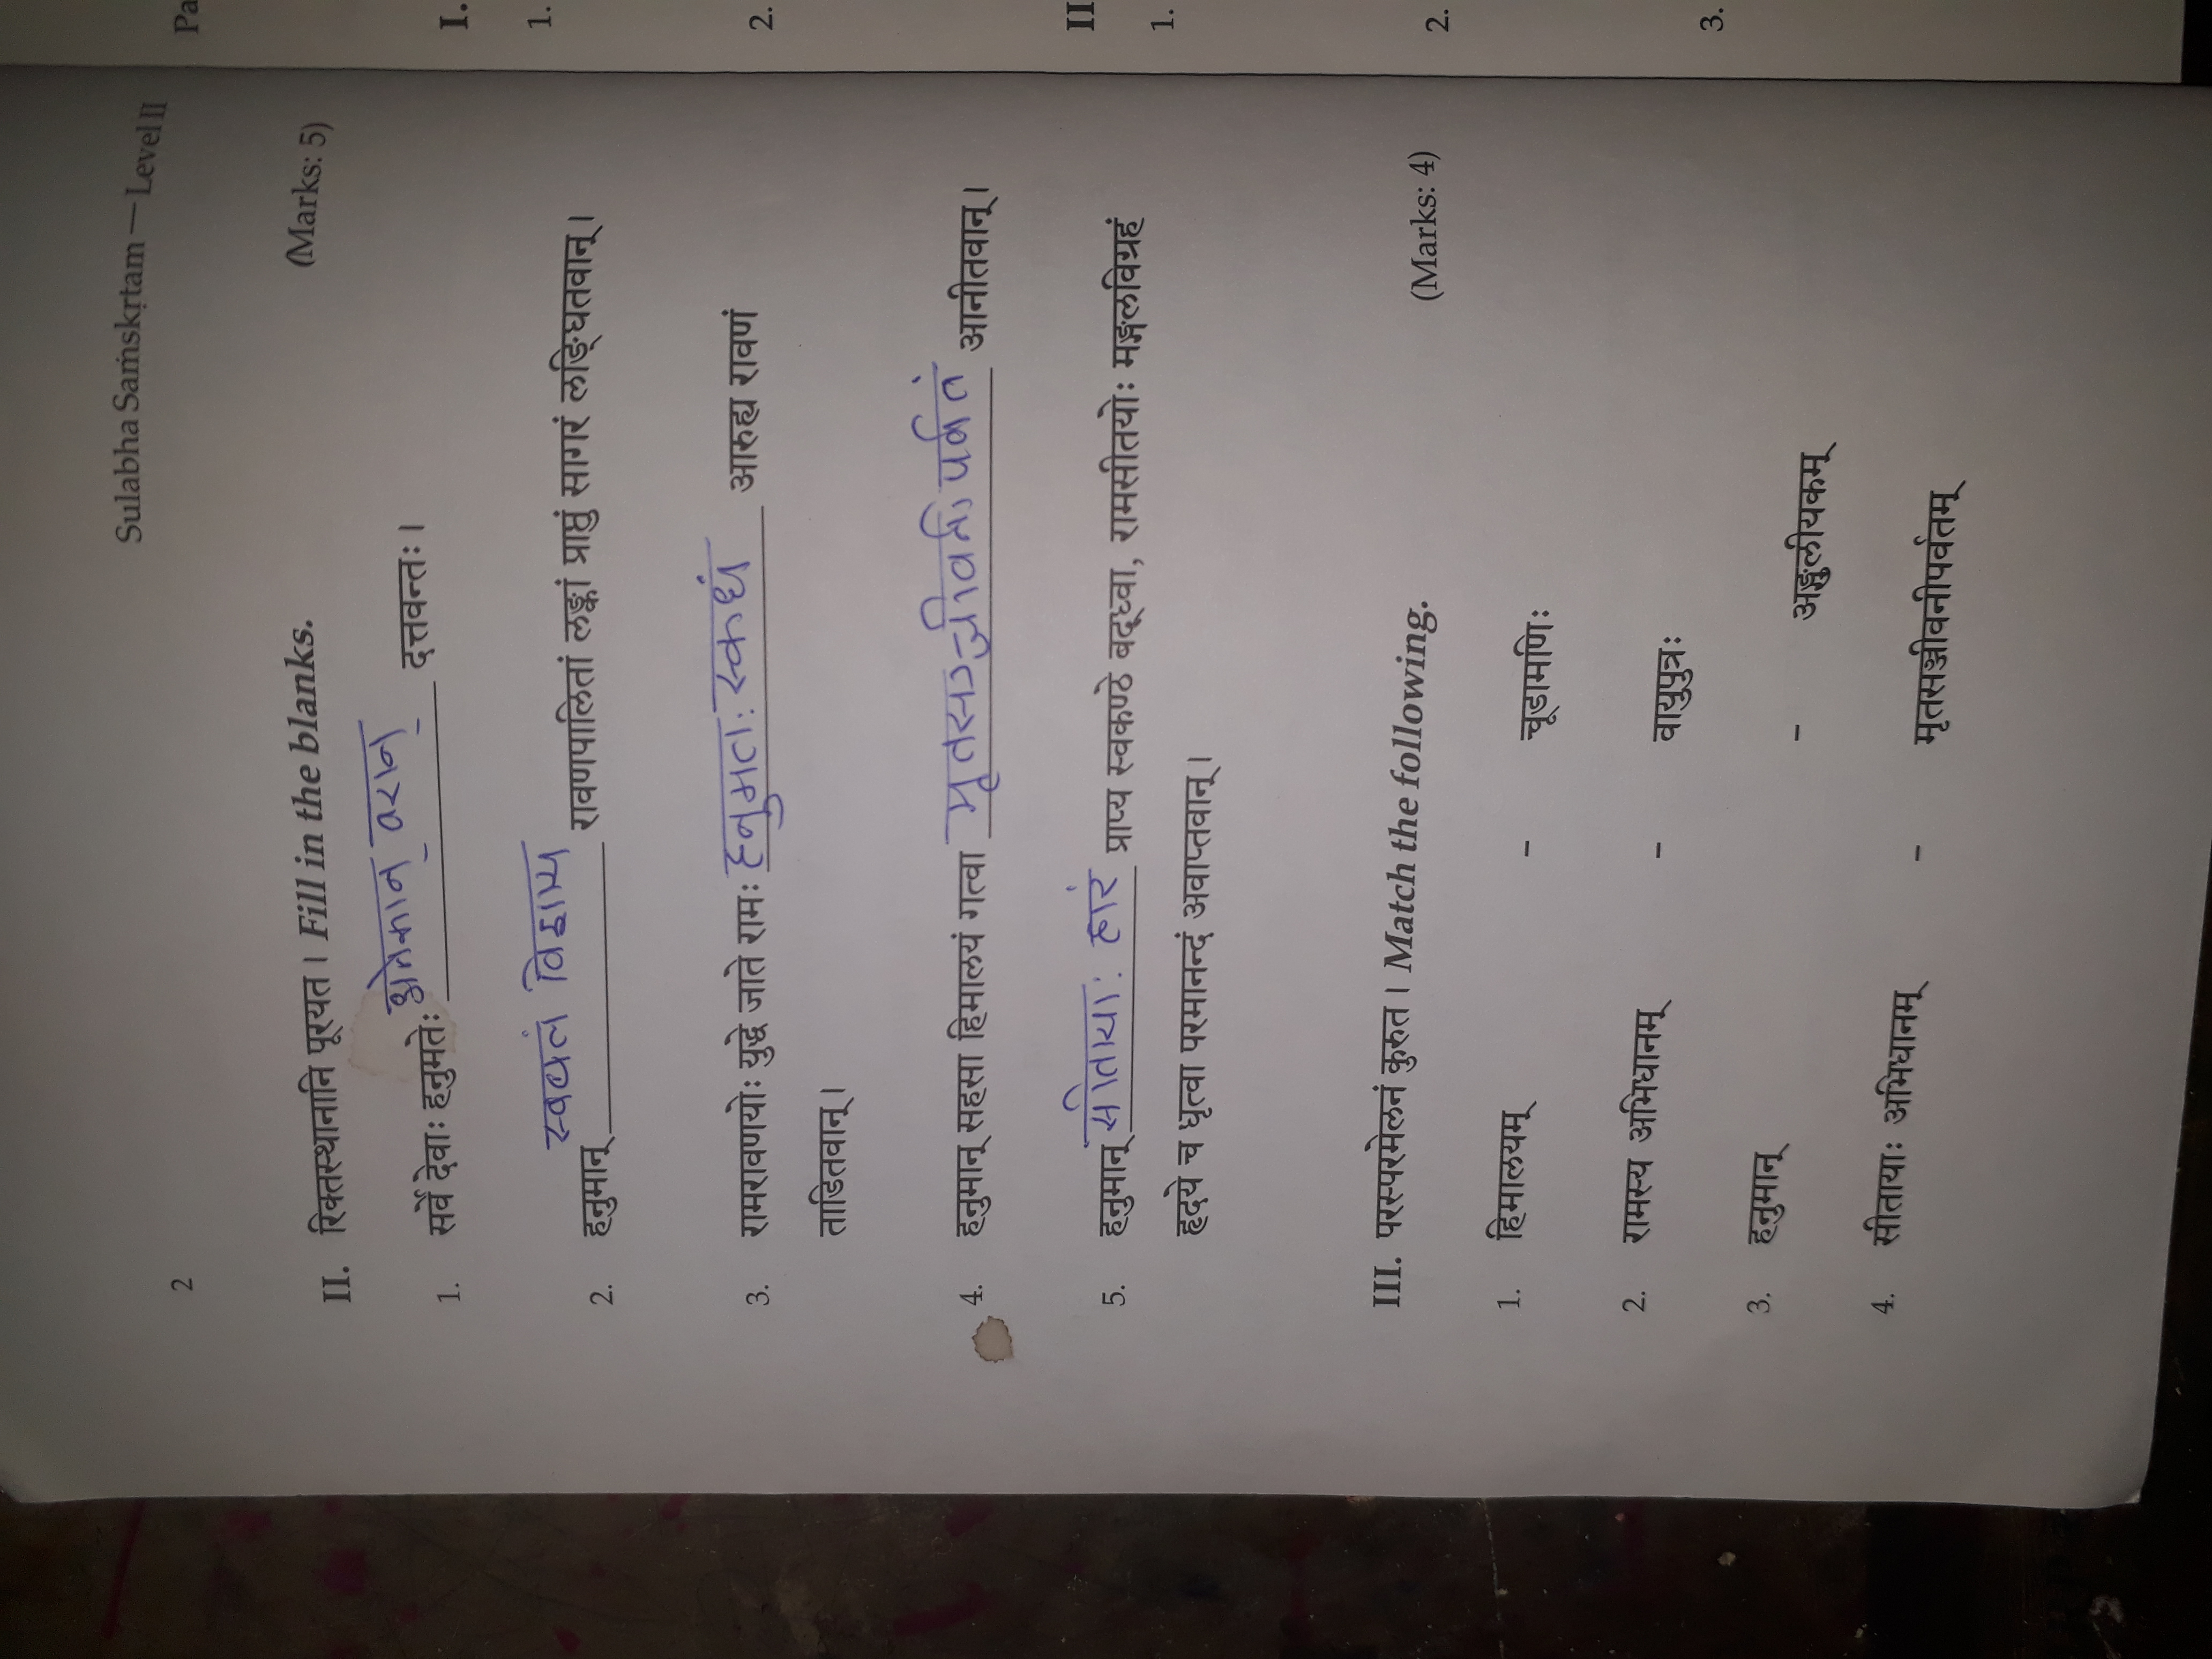 Sulabha Saṁskṛtam — Level II
2
II. रिक्तस्थानानि पूरयत । Fill in the blanks. (Marks: 5)
1. सर्वे देवाः हनुमतेः अनेकान् वरान् दत्तवन्तः ।
2. हनुमान् स्वबलं विज्ञाय रावणपालितां लङ्कां प्राप्तुं सागरं लङ्घितवान् ।
3. रामरावणयोः युद्धे जाते रामः हनुमतः स्कधं आरुह्य रावणं
ताडितवान् ।
4. हनुमान् सहसा हिमालयं गत्वा मृतसञ्जीवनीपर्वतं आनीतवान् ।
5. हनुमान् सीतायाः हारं प्राप्य स्वकण्ठे बद्ध्वा, रामसीतयोः मङ्गलविग्रहं
हृदये च धृत्वा परमानन्दं अवाप्तवान् ।
III. परस्परमेलनं कुरुत । Match the following. (Marks: 4)
1. हिमालयम् - चूडामणिः
2. रामस्य अभिधानम् - वायुपुत्रः
3. हनुमान् - अङ्गुलीयकम्
4. सीतायाः अभिधानम् - मृतसञ्जीवनीपर्वतम्
Pa
I.
1.
2.
II
1.
2.
3.